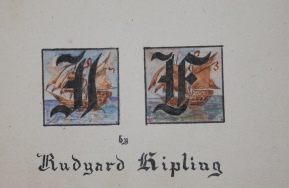 IF
by
Rudyard Kipling